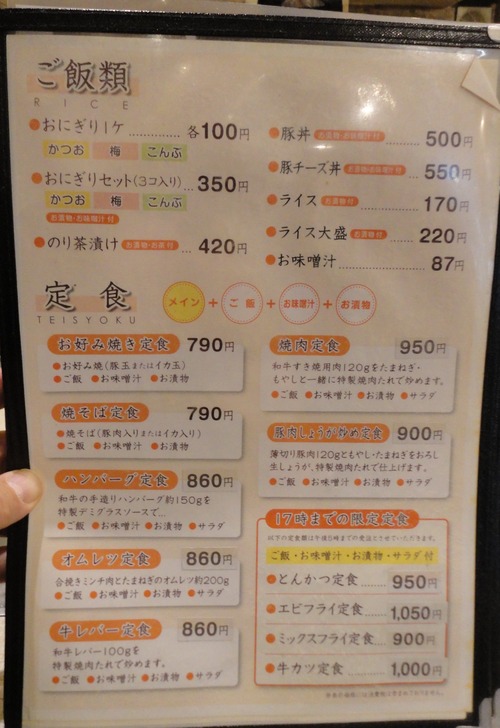 ご飯類
RICE
●おにぎり1ケ………… 各100円
かつお 梅 こんぶ
●おにぎりセット(3コ入り)… 350円
かつお 梅 こんぶ
お漬物・お味噌汁 付
●のり茶漬け お漬物・お茶 付 … 420円
●豚丼 お漬物・お味噌汁 付 …… 500円
●豚チーズ丼 お漬物・お味噌汁 付 … 550円
●ライス お漬物 付 ………… 170円
●ライス大盛 お漬物 付 …… 220円
●お味噌汁……………… 87円
定食
TEISYOKU
メイン + ご飯 + お味噌汁 + お漬物
お好み焼き定食 790円
●お好み焼(豚玉またはイカ玉)
●ご飯 ●お味噌汁 ●お漬物
焼そば定食 790円
●焼そば(豚肉入りまたはイカ入り)
●ご飯 ●お味噌汁 ●お漬物
ハンバーグ定食 860円
和牛の手造りハンバーグ約150gを
特製デミグラスソースで…
●ご飯 ●お味噌汁 ●お漬物 ●サラダ
オムレツ定食 860円
合挽きミンチ肉とたまねぎのオムレツ約200g
●ご飯 ●お味噌汁 ●お漬物 ●サラダ
牛レバー定食 860円
和牛レバー100gを
特製焼肉たれで炒めます。
●ご飯 ●お味噌汁 ●お漬物 ●サラダ
焼肉定食 950円
和牛すき焼用肉120gをたまねぎ・
もやしと一緒に特製焼肉たれで炒めます。
●ご飯 ●お味噌汁 ●お漬物 ●サラダ
豚肉しょうが炒め定食 900円
薄切り豚肉120gともやし・たまねぎをおろし
生しょうが、特製焼肉たれで仕上げます。
●ご飯 ●お味噌汁 ●お漬物 ●サラダ
17時までの限定定食
以下の定食類は午後5時までの受注とさせていただきます。
ご飯・お味噌汁・お漬物・サラダ 付
●とんかつ定食…… 950円
●エビフライ定食…… 1,050円
●ミックスフライ定食…… 900円
●牛カツ定食………… 1,000円